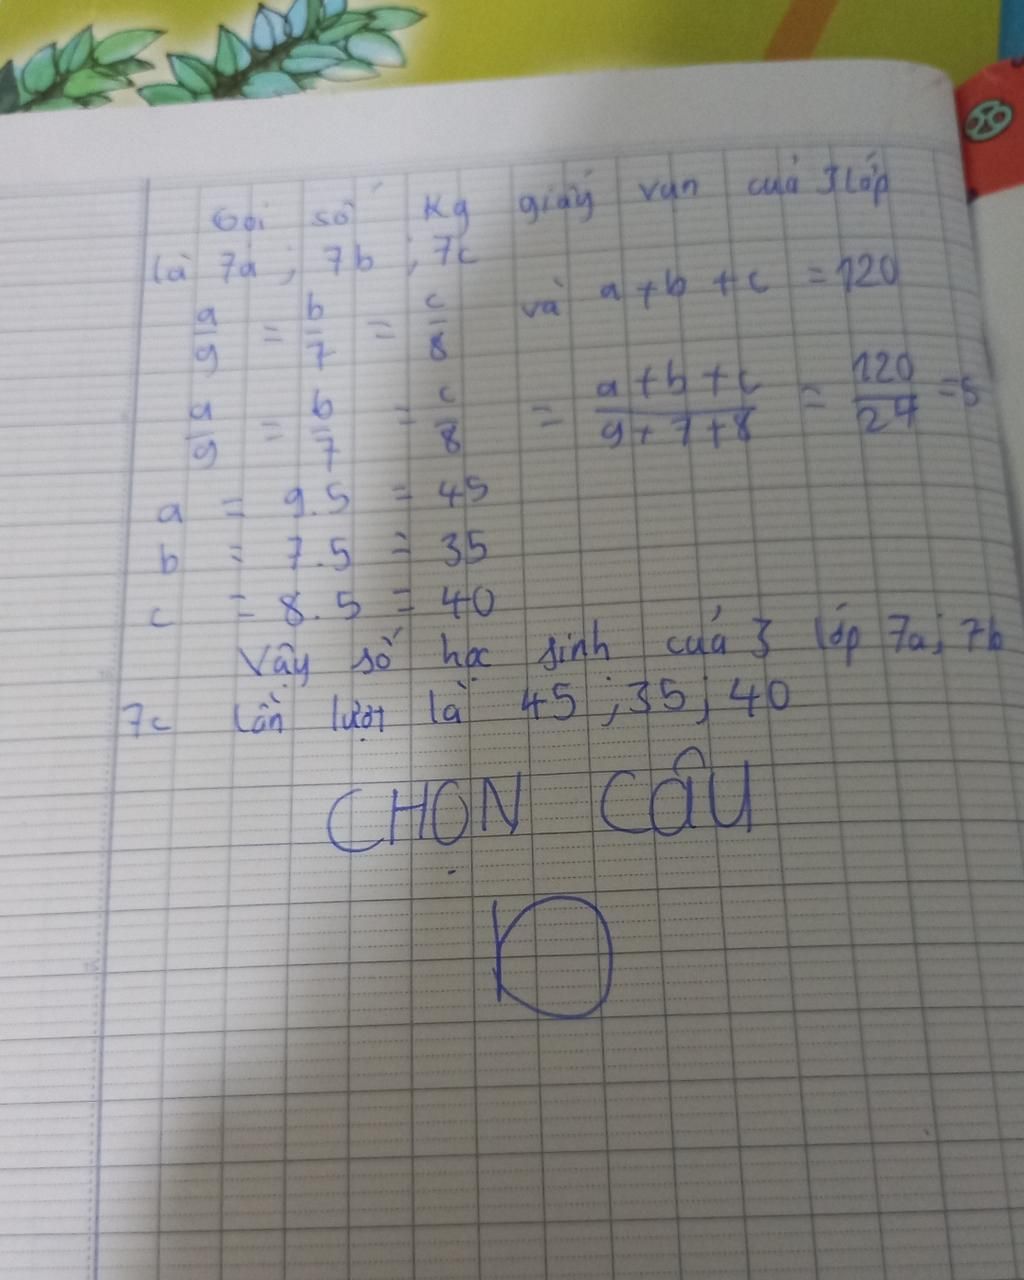 Gọi số kg giấy vụn cuả 3 lớp
là 7a ; 7b ; 7c
a/9 = b/7 = c/8 và a + b + c = 120
a/9 = b/7 = c/8 = a + b + c / 9 + 7 + 8 = 120/24 = 5
a = 9.5 = 45
b = 7.5 = 35
c = 8.5 = 40
Vậy số học sinh cuả 3 lớp 7a; 7b
7c lần lượt là 45 ; 35 ; 40
CHỌN CÂU
D